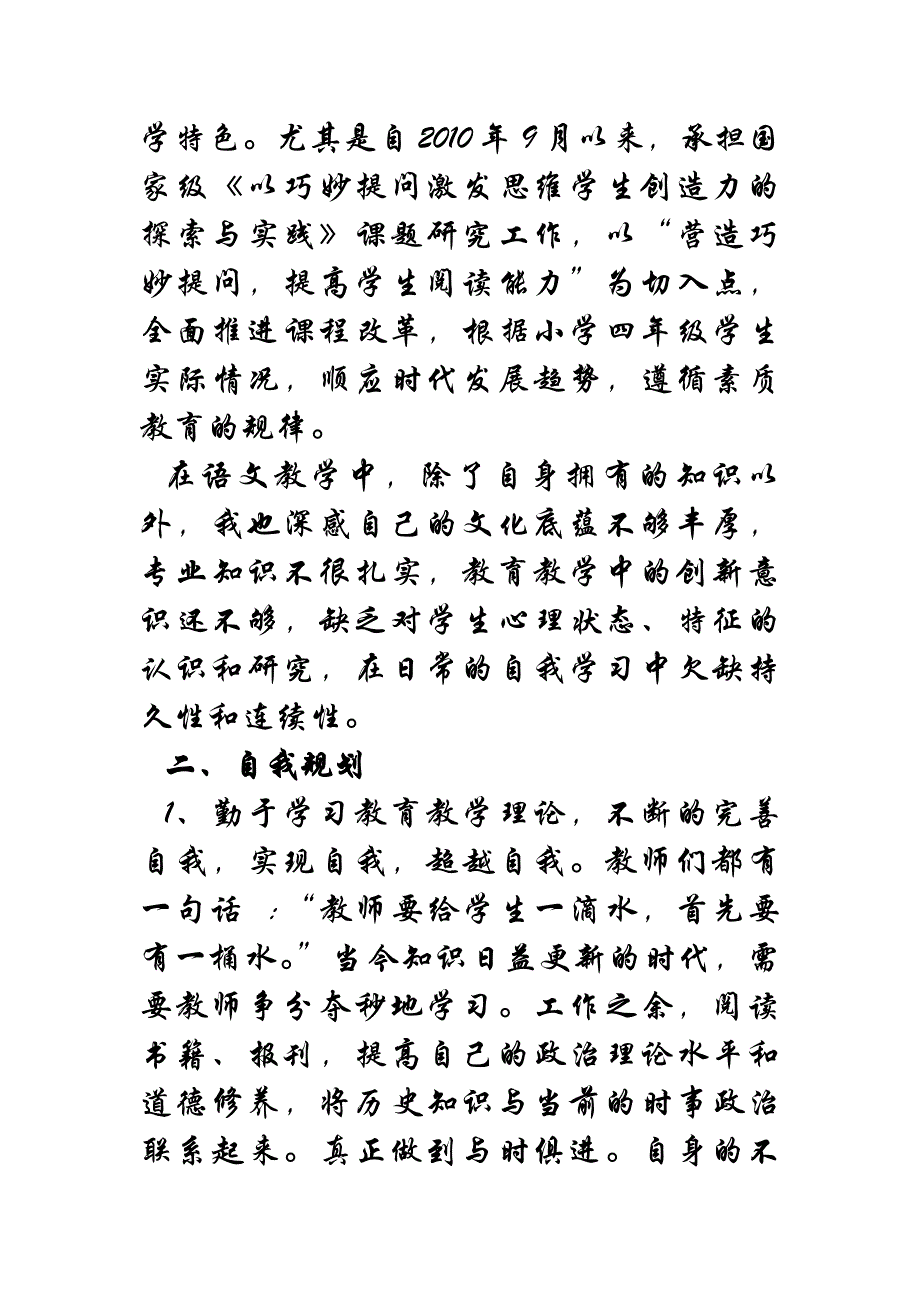 学特色。尤其是自2010年9月以来，承担国
家级《以巧妙提问激发思维学生创造力的
探索与实践》课题研究工作，以“营造巧
妙提问，提高学生阅读能力”为切入点，
全面推进课程改革，根据小学四年级学生
实际情况，顺应时代发展趋势，遵循素质
教育的规律。
在语文教学中，除了自身拥有的知识以
外，我也深感自己的文化底蕴不够丰厚，
专业知识不很扎实，教育教学中的创新意
识还不够，缺乏对学生心理状态、特征的
认识和研究，在日常的自我学习中欠缺持
久性和连续性。
二、自我规划
1、勤于学习教育教学理论，不断的完善
自我，实现自我，超越自我。教师们都有
一句话 ：“教师要给学生一滴水，首先要
有一桶水。”当今知识日益更新的时代，需
要教师争分夺秒地学习。工作之余，阅读
书籍、报刊，提高自己的政治理论水平和
道德修养，将历史知识与当前的时事政治
联系起来。真正做到与时俱进。自身的不